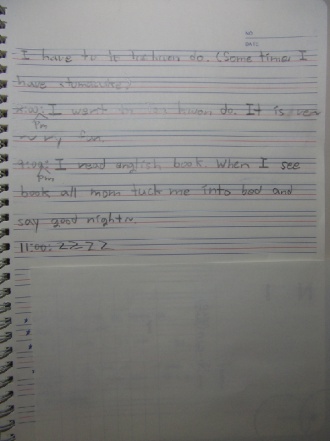 I have to go taekwon do. (Some times I
have
I went taekwon do. It is very
pm
fun.
I read english book. When I see
pm
book all mom tuck me into bed and
say good night~.
11:00: ZZZZ